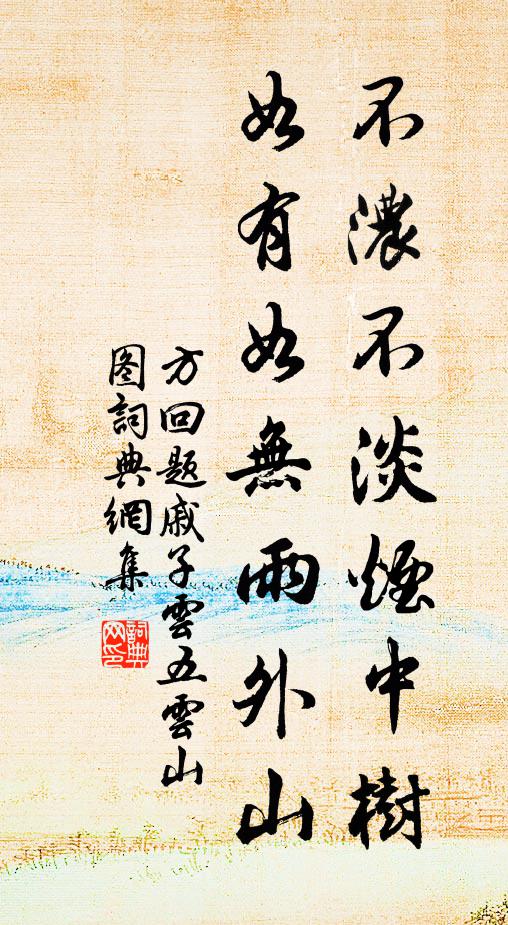 不濃不淡煙中樹
如有如無雨外山
方回题戚子雲五雲山
图詞典網集
詞典网印